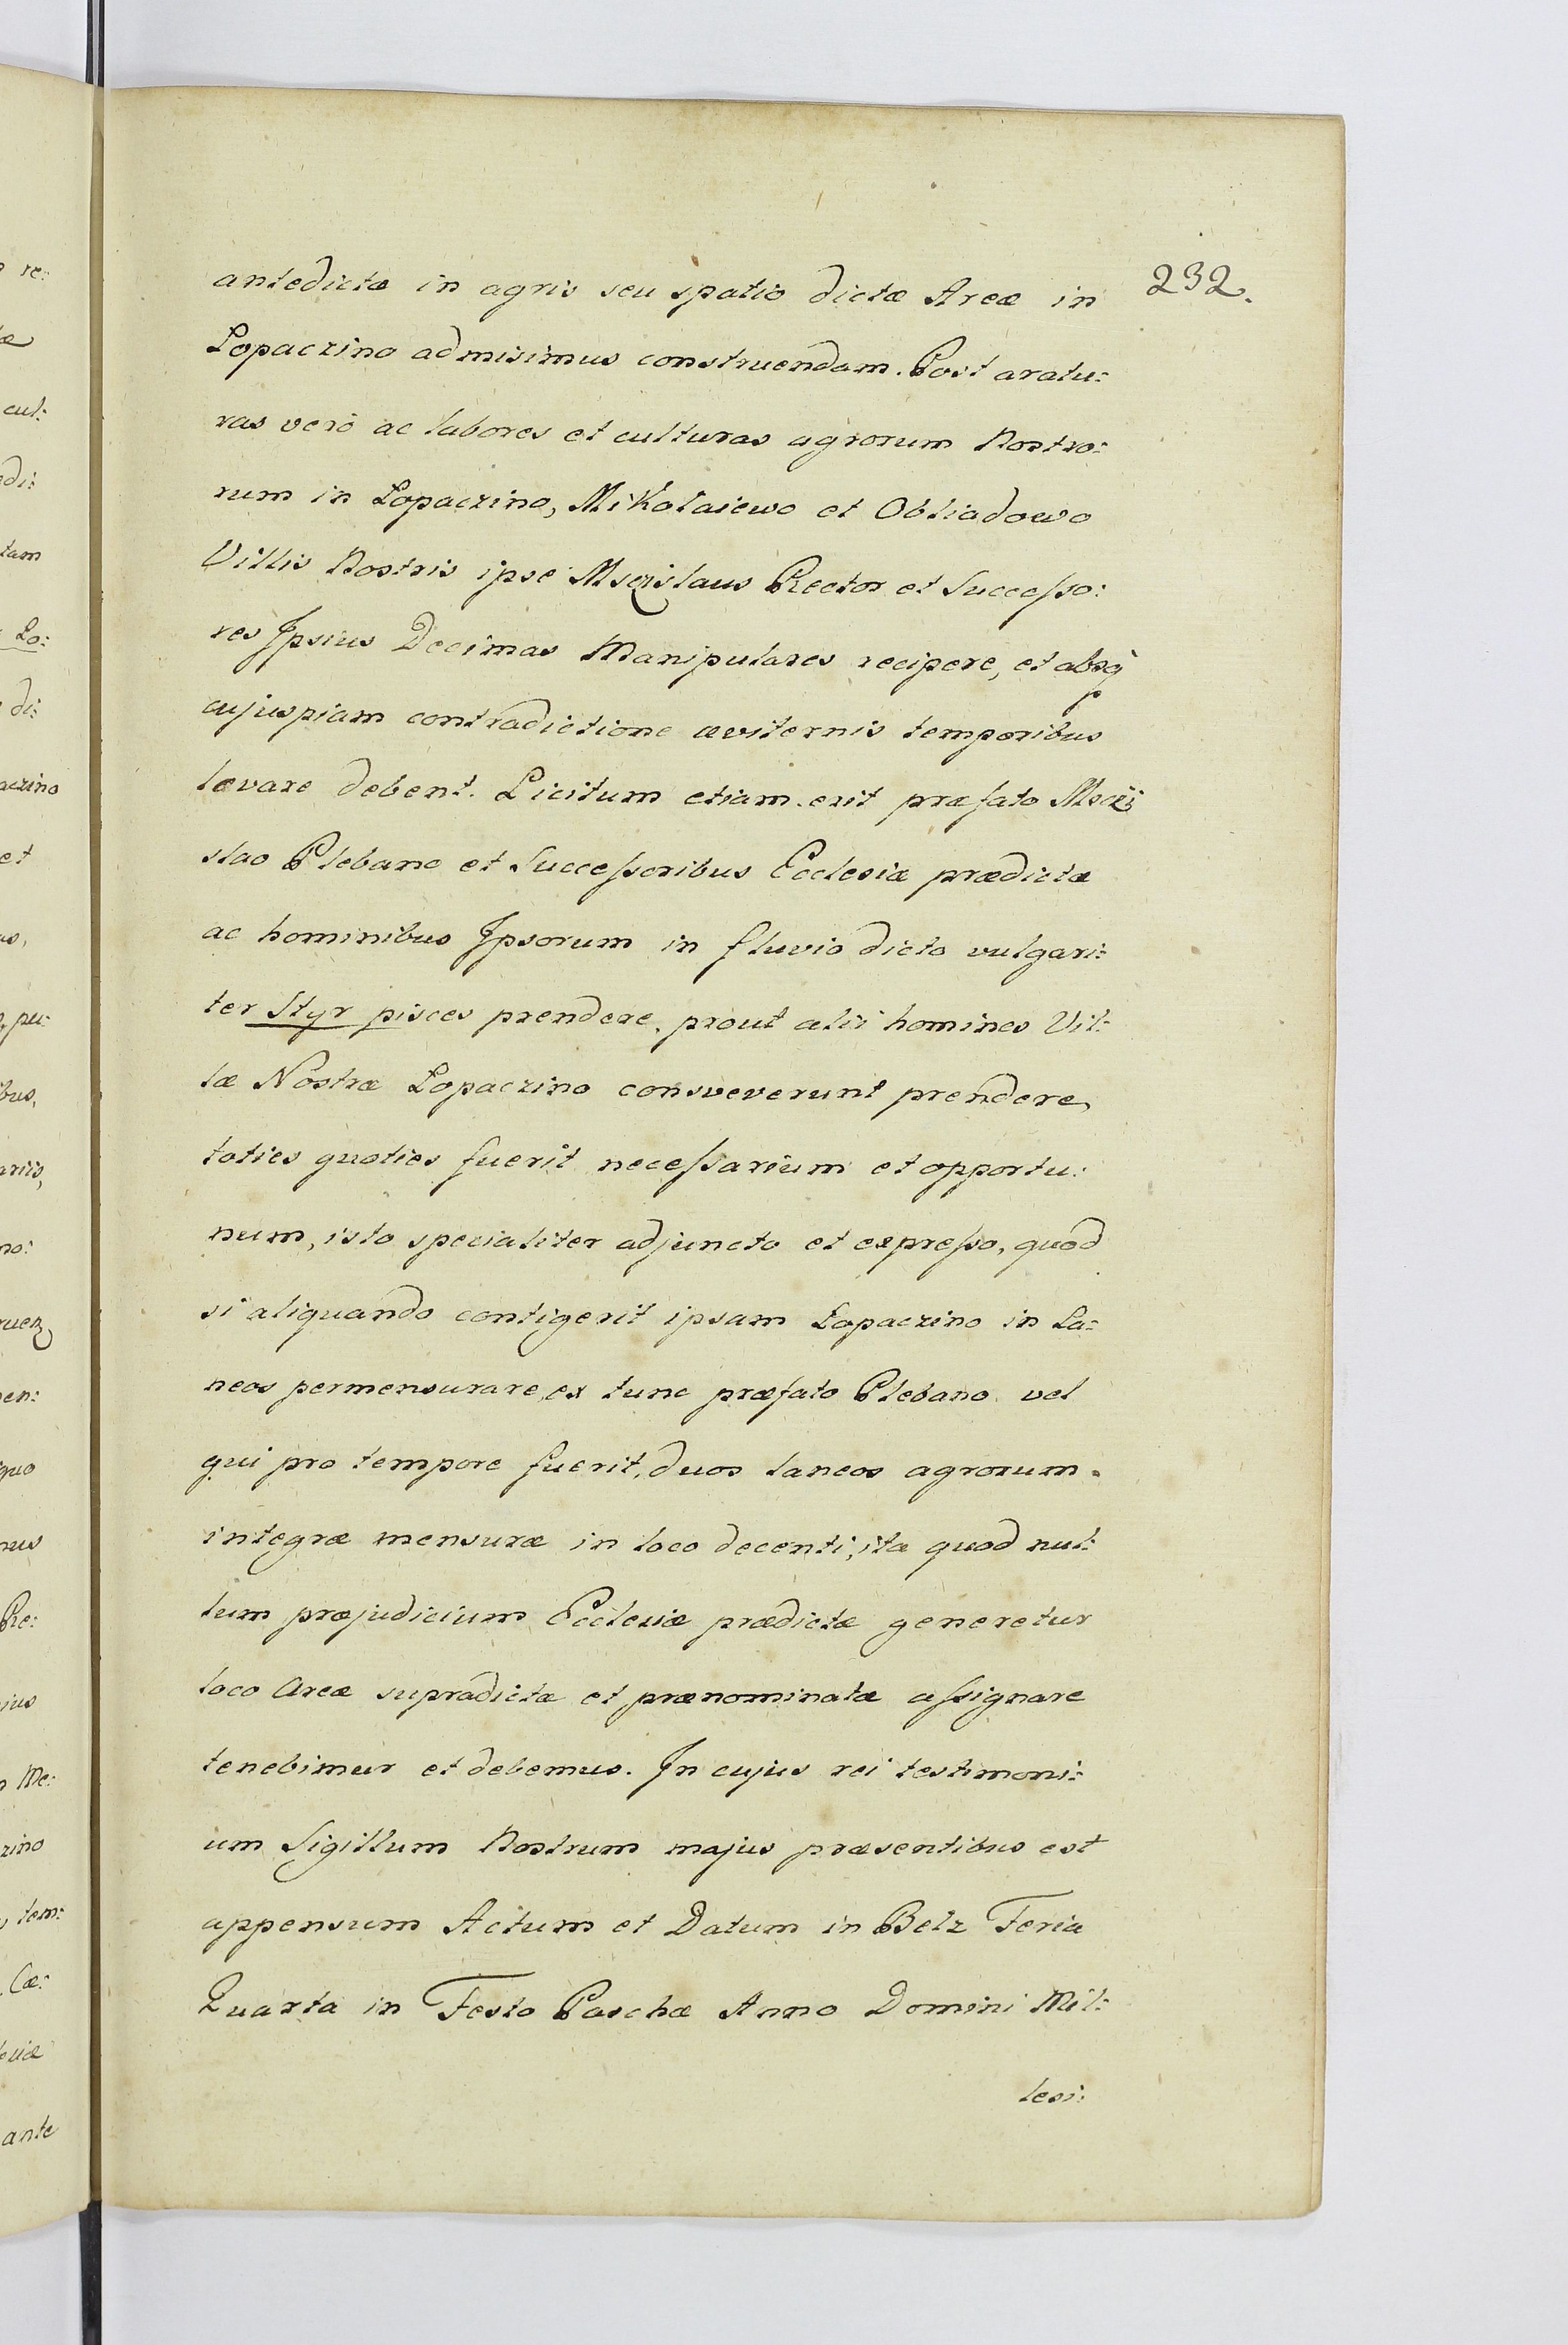 232.
antedictæ in agris seu spatio dictæ Areæ in
Lopaczino admisimus construendam. Post aratu:
ras vero ac labores et culturas agrorum Nostro:
rum in Lopaczino, Mikołaiewo et Obliadowo
Villis Nostris ipse Msczislaus Rector et Successo:
res Ipsius Decimas Manipulares recipere, et absq
cujuspiam contradictione æviternis temporibus
levare debent. Licitum etiam erit præfato Msczi
slao Plebano et Successoribus Ecclesiæ prædictæ
ac hominibus Ipsorum in fluvio dicto vulgari:
ter Styr pisces prendere, prout alii homines Vil:
læ Nostræ Lopaczino consveverunt prendere,
toties quoties fuerit necessarium et opportu:
num, isto specialiter adjuncto et expresso, quod
si aliquando contigerit ipsam Lopaczino in La:
neos permensurare, ex tunc præfato Plebano vel
qui pro tempore fuerit, duos laneos agrorum
integræ mensuræ in loco decenti, ita quod nul:
lum præjudicium Ecclesiæ prædictæ generetur
loco Areæ supradictæ et prænominatæ assignare
tenebimur et debemus. In cujus rei testimoni:
um Sigillum Nostrum majus præsentibus est
appensum Actum et Datum in Belz Feria
Quarta in Festo Paschæ Anno Domini Mil:
lesi: